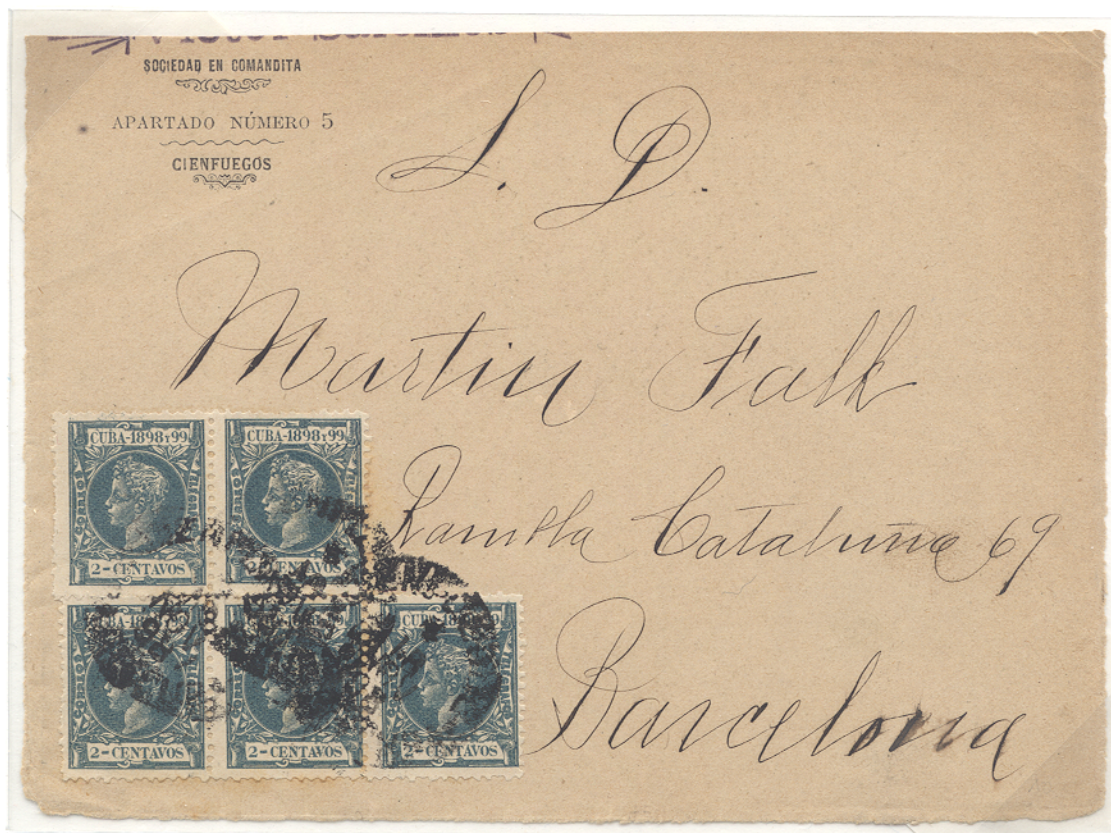 SOCIEDAD EN COMANDITA
APARTADO NÚMERO 5
CIENFUEGOS
S. D.
Martin Falk
Rambla Cataluña 69
Barcelona
CUBA-1898 Y 99
2-CENTAVOS
CUBA-1898 Y 99
2-CENTAVOS
CUBA-1898 Y 99
2-CENTAVOS
2-CENTAVOS
CUBA-1898 Y 99
2-CENTAVOS